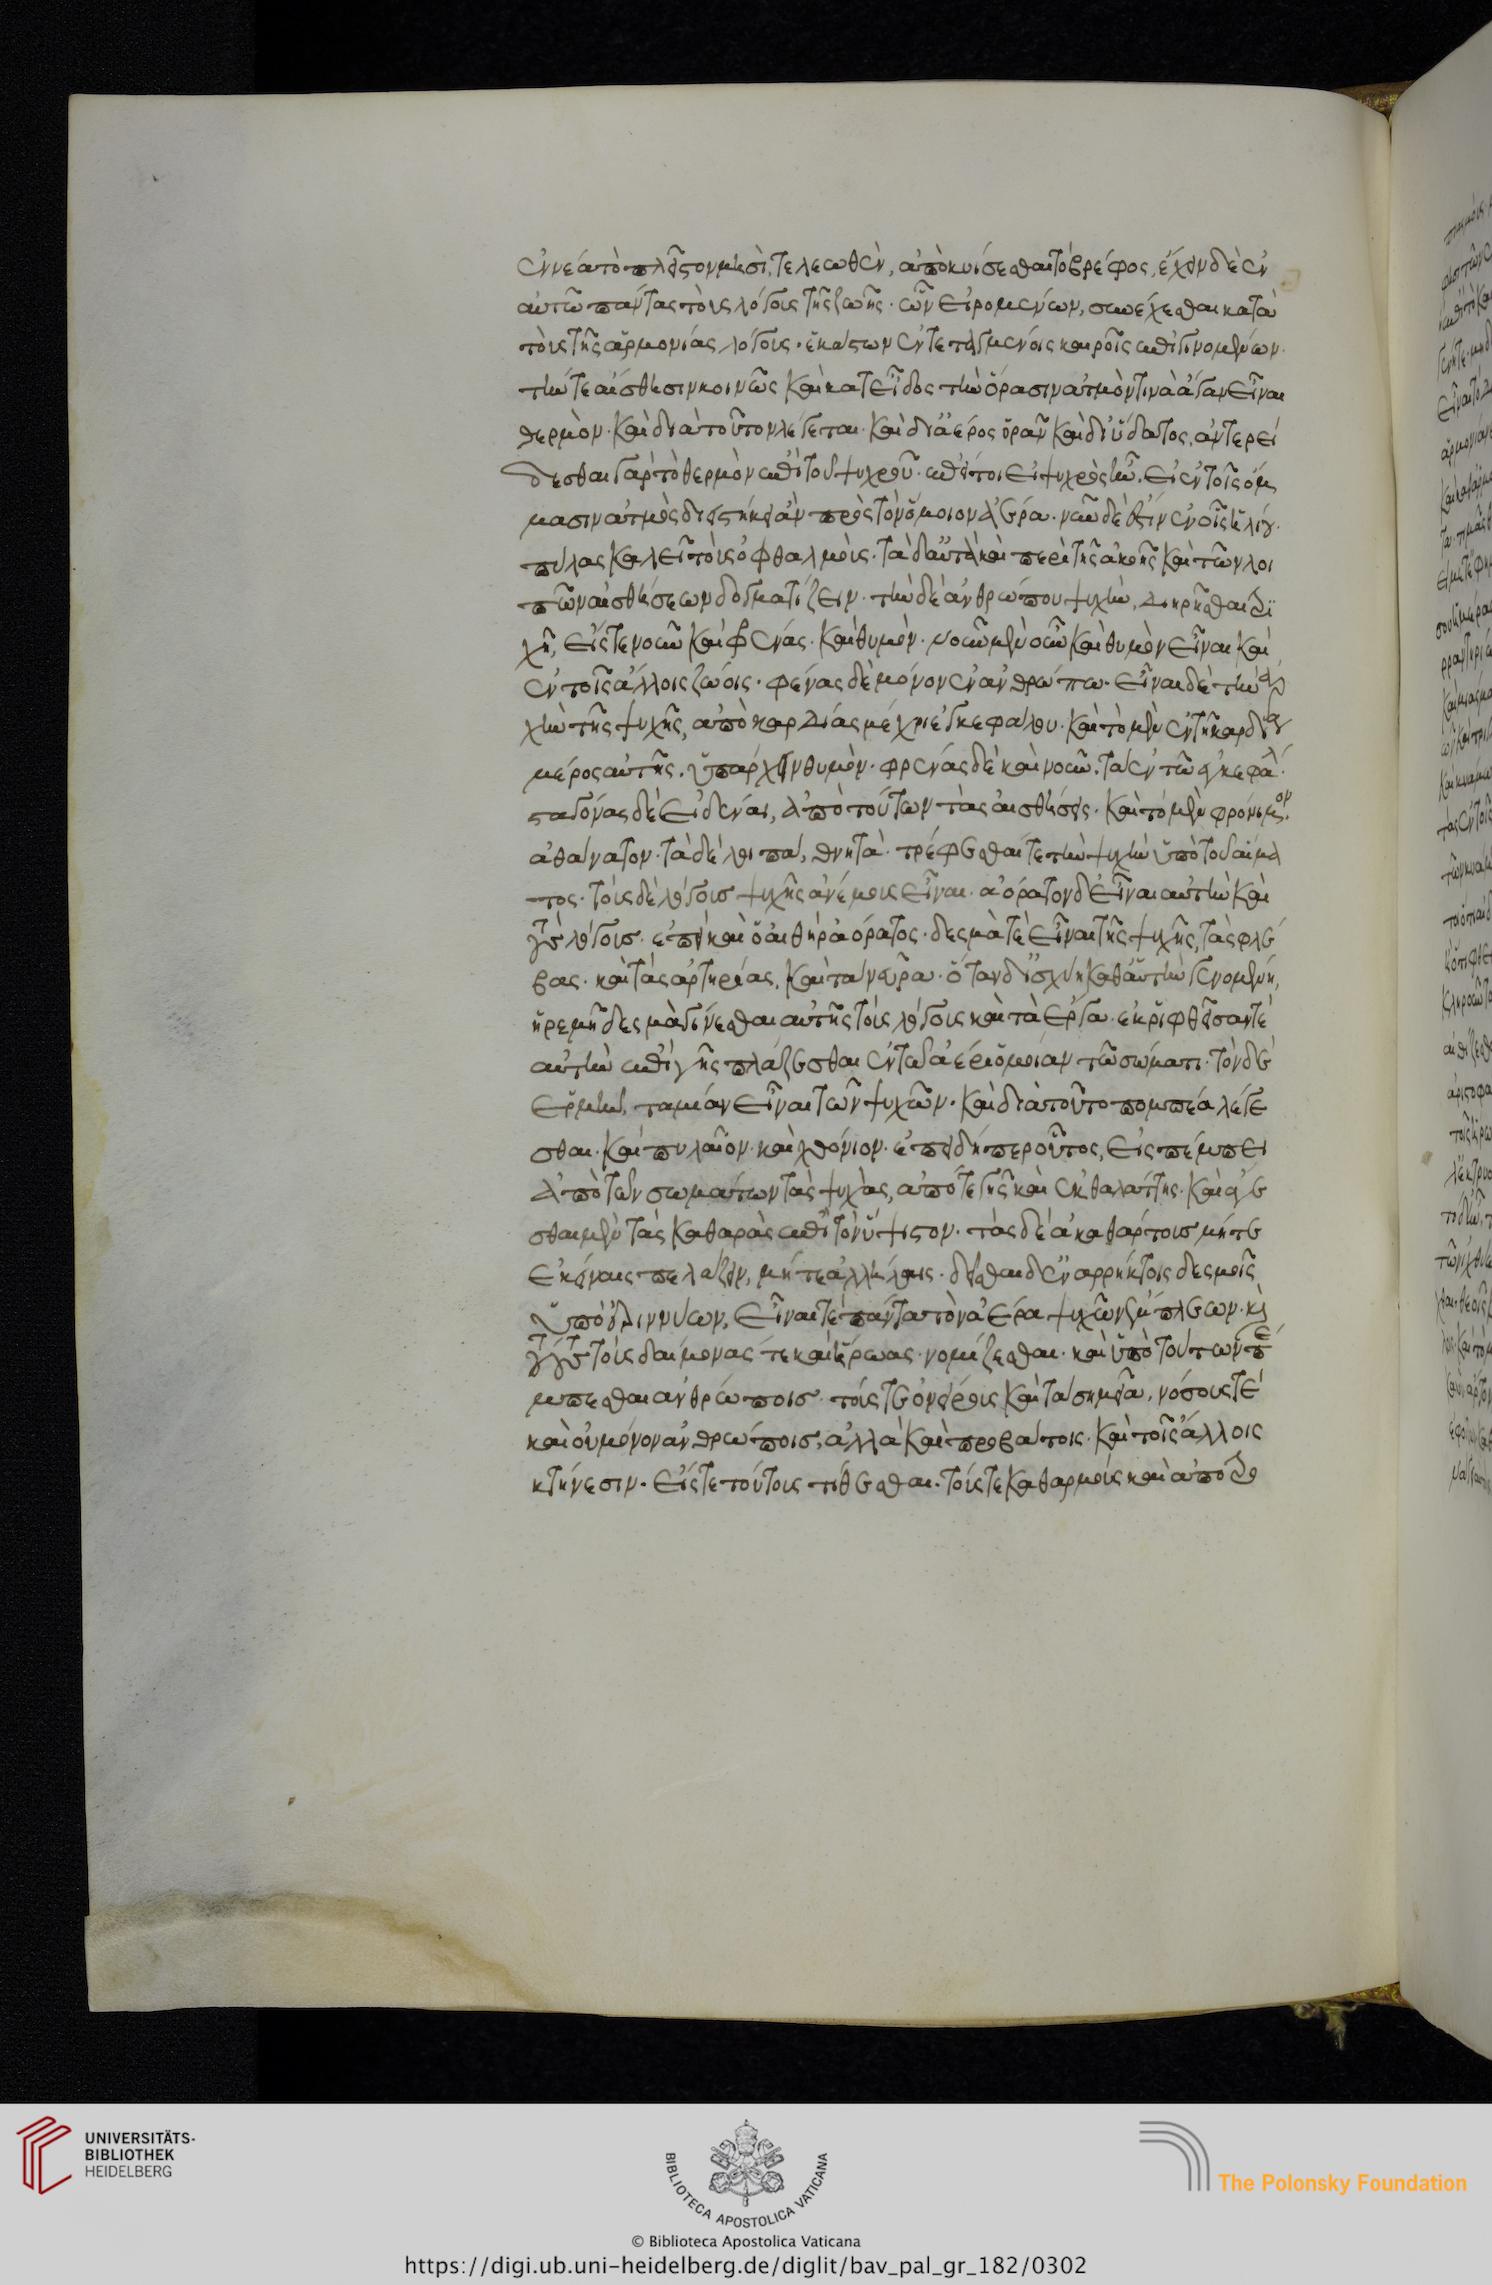 ἐννέα τὸ πλεῖστον μησὶ, τελεωθὲν, ἀπὸκυίσεσθαι τὸ βρέφος, ἔχειν δὲ ἐν
αὐτῶ πάντας τοὺς λόγους τῆς ζωῆς· ὧν εἰρομένων, συνέχεσθαι κατὰ
τοὺς τῆς ἁρμονίας λόγους· ἑκάστων ἐν τεταγμένοις καιροῖς ἐπιγινομένων.
τήν τε αἴσθησιν κοινῶς καὶ κατ εἶδος τὴν ὅρασιν ἀτμὸν τινὰ ἄγαν εἶναι
θερμὸν· καὶ διὰ τοῦτον λέγεται· καὶ δι ἀέρος ὁρᾶν καὶ δι ὕδατος, ἀντερεί
δεσθαι γὰρ τὸ θερμὸν ἐπὶ τοῦ ψυχροῦ· ἐπεί τοι εἰ ψυχρὸς ἦν. εἰ ἐν τοῖς ὄμ
μασιν ἀτμὸς διειστήκει ἀν πρὸς τὸν ὅμοιον ἀέρα· νῦν δὲ ἐστὶν ἐν οἷς ἡλίου.
πύλας καλεῖ τοὺς ὀφθαλμοὺς· τὰ δ αὐτὰ καὶ περὶ τῆς ἀκοῆς καὶ τῶν λοι
πῶν αἰσθήσεων δογματίζειν· τὴν δὲ ἀνθρώπου ψυχὴν, διηρῆσθαι δι
χῆ, εἴς τε νοῦν καὶ φρένας· καὶ θυμὸν· νοῦν μὲν οὖν καὶ θυμὸν εἶναι καὶ
ἐν τοῖς ἄλλοις ζώοις· φένας δὲ μόνον ἐν ἀνθρώπω· εἶναι δὲ τὴν ἀρ
χὴν τῆς ψυχῆς, ἀπὸ καρδίας μέχρι ἐγκεφάλου· καὶ τὸ μὲν ἐν τῆ καρδία
μέρος αὐτῆς. ὑπάρχειν θυμὸν· φρένας δὲ καὶ νοῦν. τὰ ἐν τῶ ἐγκεφάλ.
σταγόνας δὲ εἰδέναι, ἀπὸ τούτων τὰς αἰσθήσεις· καὶ τὸ μὲν φρόνιμον.
ἀθάνατον· τὰ δὲ λοιπὰ, θνητὰ· τρέφεσθαί τε τὴν ψυχὴν ὑπὸ τοῦ αἵμα
τος· τοὺς δὲ λόγους ψυχῆς ἀνέμους εἶναι· ἀόρατον δ εἶναι αὐτὴν καὶ
τοὺς λόγους· ἐπεὶ καὶ ὁ αἰθὴρ ἀόρατος· δεσμά τε εἶναι τῆς ψυχῆς, τὰς φλέ
βας· καὶ τὰς ἀρτηρίας, καὶ τὰ νεῦρα· ὅταν δ ἰσχύη καθ αὑτὴν γενομένη,
ἠρεμῆ δεσμὰ γίνεσθαι αὐτῆς τοὺς λόγους καὶ τὰ ἔργα· ἐκριφθεῖσάν τε
αὐτὴν ἐπὶ γῆς πλάζεσθαι ἐν τῶ ἀέρι ὁμοίαν τῶ σώματι· τὸν δὲ
ἑρμῆν, ταμίαν εἶναι τῶν ψυχῶν· καὶ διὰ τοῦτο πομπέα λέγε
σθαι· καὶ πυλαῖον· καὶ χθόνιον· ἐπειδήπερ οὗτος, εἰσπέμπει
ἀπὸ τῶν σωμάτων τὰς ψυχὰς, ἀπό τε γῆς καὶ ἐκ θαλάττης· καὶ ἄγε
σθαι μὲν τὰς καθαρὰς ἐπὶ τὸν ὕψιστον· τὰς δὲ ἀκαθάρτους μήτε
ἐκείναις πελάζειν, μήτε ἀλλήλαις· δεῖσθαι δ ἐν ἀρρήκτοις δεσμοῖς
ὑπὸ ἐρινύων, εἶναί τε πάντα τὸν ἀέρα ψυχῶν ἔμπλεων· καὶ
τούτους τοὺς δαίμονας τε καὶ ἥρωας· νομίζεσθαι· καὶ ὑπὸ τούτων πέ
μπεσθαι ἀνθρώποις· τούς τε ὀνείρους καὶ τὰ σημεῖα, νόσους τε
καὶ οὐ μόνον ἀνθρώποις, ἀλλὰ καὶ προβάτοις· καὶ τοῖς ἄλλοις
κτήνεσιν· εἴς τε τούτους τίθεσθαι· τούς τε καθαρμοὺς καὶ ἀποδιο
UNIVERSITÄTS-
BIBLIOTHEK
HEIDELBERG
BIBLIOTECA APOSTOLICA VATICANA
The Polonsky Foundation
© Biblioteca Apostolica Vaticana
https://digi.ub.uni-heidelberg.de/diglit/bav_pal_gr_182/0302